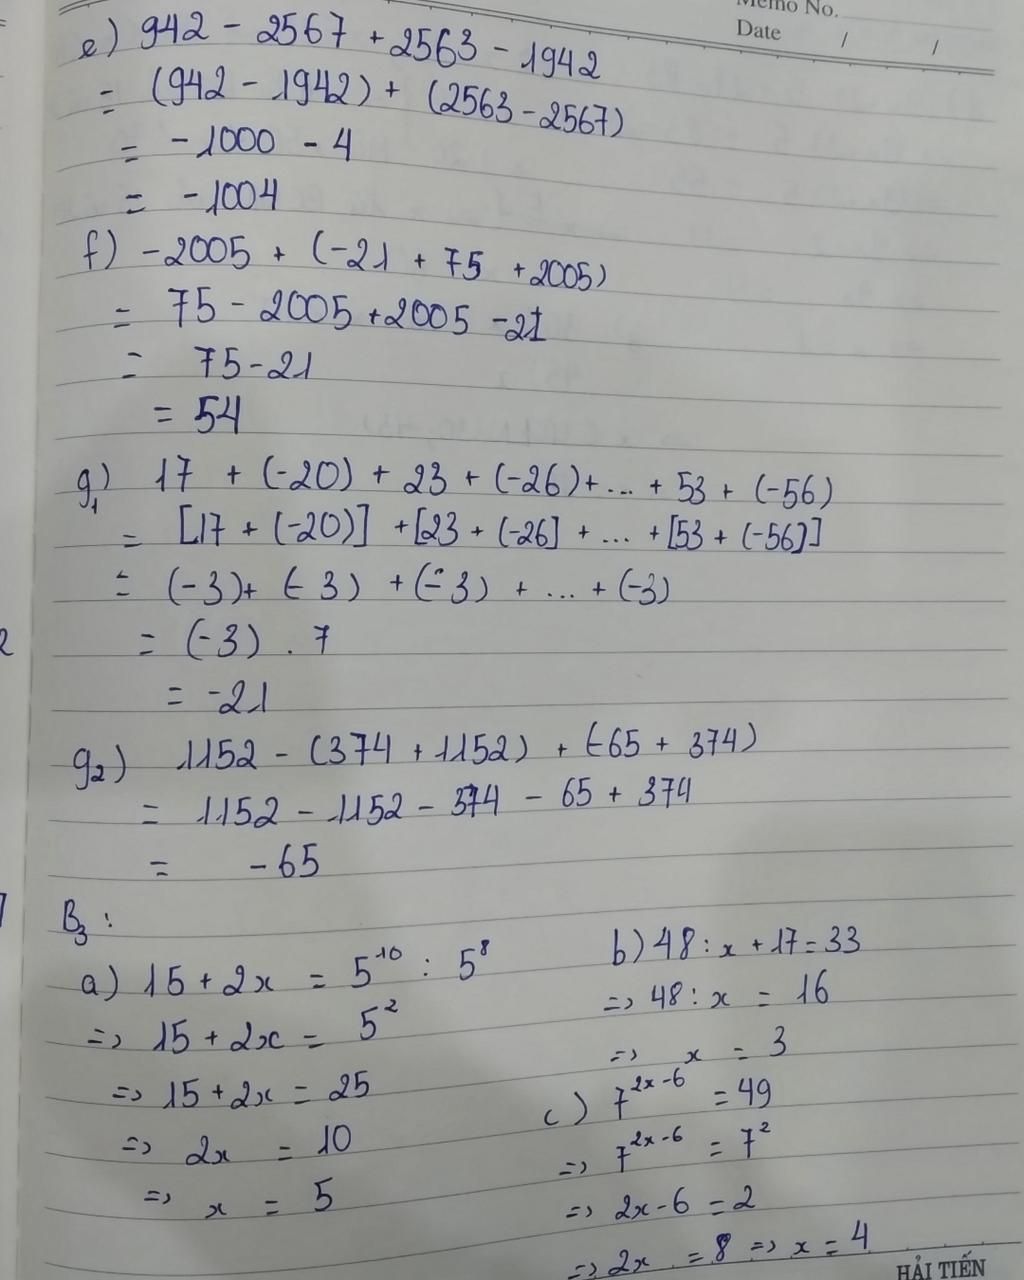 Memo No.
Date / /
e) 942 - 2567 + 2563 - 1942
= (942 - 1942) + (2563 - 2567)
= -1000 - 4
= -1004
f) -2005 + (-21 + 75 + 2005)
= 75 - 2005 + 2005 - 21
= 75 - 21
= 54
g₁) 17 + (-20) + 23 + (-26) + ... + 53 + (-56)
= [17 + (-20)] + [23 + (-26] + ... + [53 + (-56)]
= (-3) + (-3) + (-3) + ... + (-3)
= (-3) . 7
= -21
g₂) 1152 - (374 + 1152) + (-65 + 374)
= 1152 - 1152 - 374 - 65 + 374
= -65
B₃ :
a) 15 + 2x = 5¹⁰ : 5⁸
=> 15 + 2x = 5²
=> 15 + 2x = 25
=> 2x = 10
=> x = 5
b) 48 : x + 17 = 33
=> 48 : x = 16
=> x = 3
c) 7²ˣ⁻⁶ = 49
=> 7²ˣ⁻⁶ = 7²
=> 2x - 6 = 2
=> 2x = 8 => x = 4
HẢI TIẾN